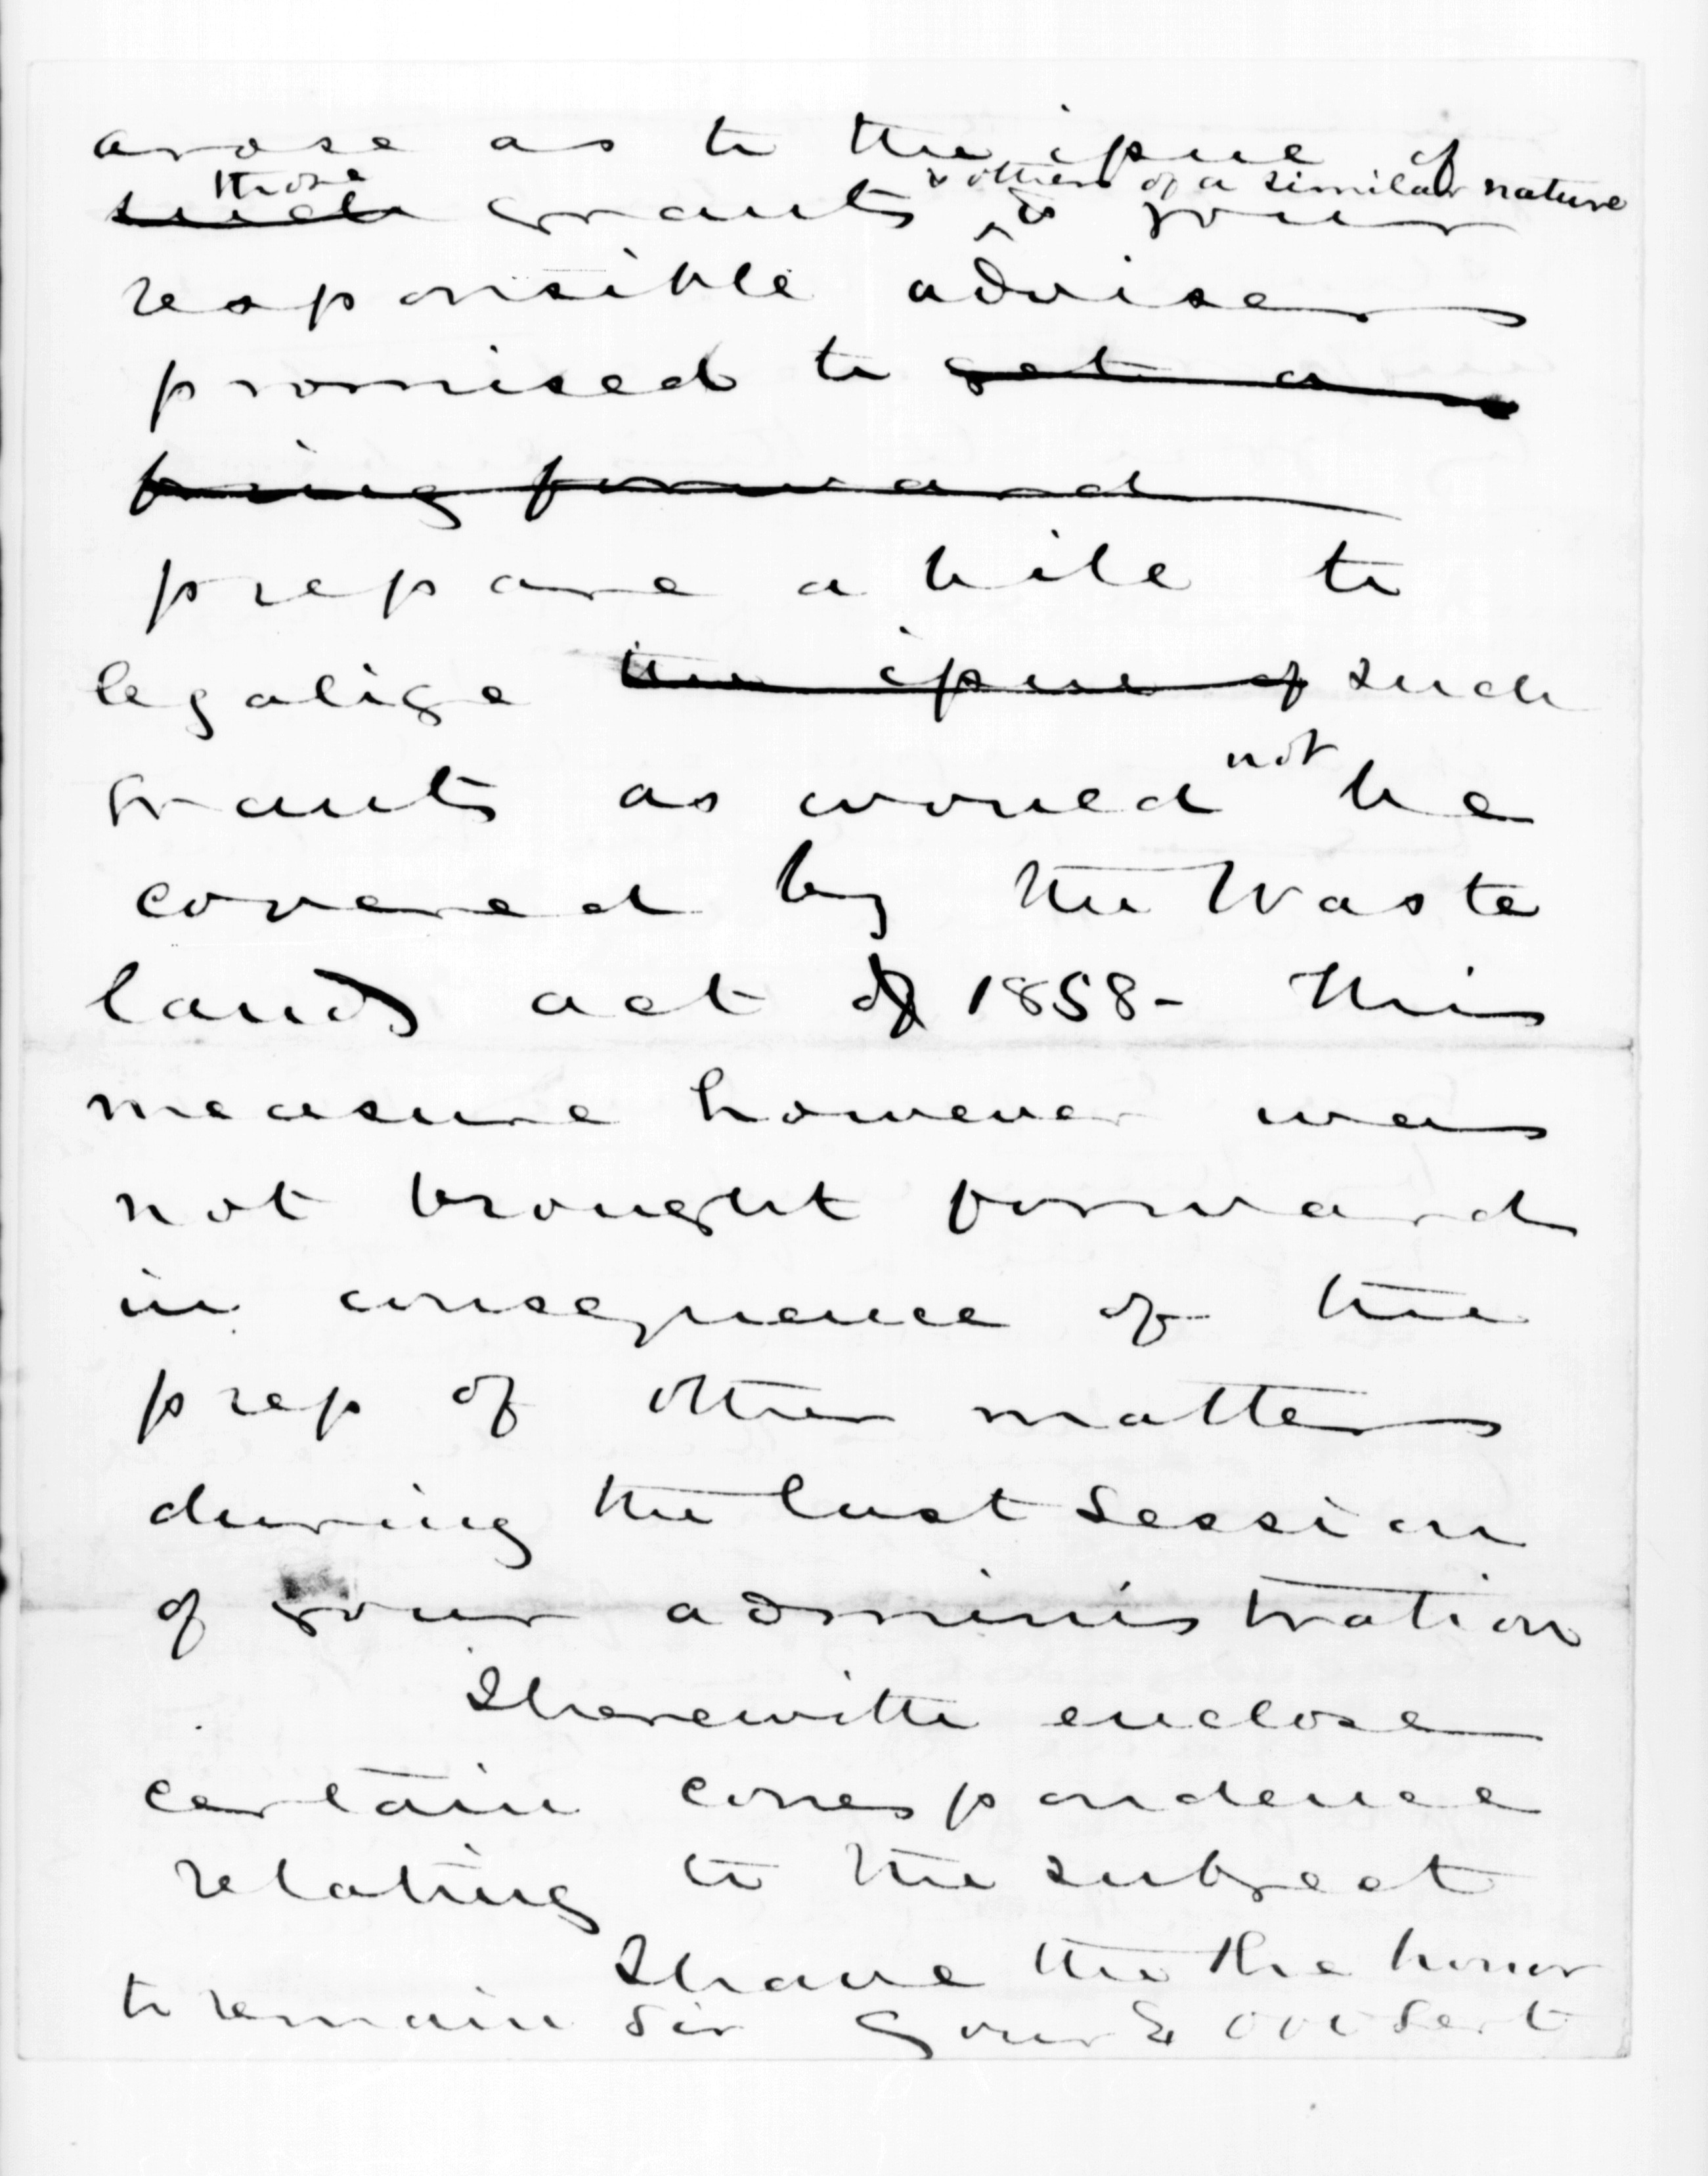 arose as to the issue of
those & others of a similar nature
such grants ^ to your
responsible advisers
promised to get a
bring forward
prepare a bill to
legalize the issue of such
not
grants as would be
covered by the Waste
lands act of 1858 - This
measure however was
not brought forward
in consequence of the
press of other matters
during the last Session
of your administration
I herewith enclose
certain correspondence
relating to the subject
I have the the honor
to remain Sir Your &